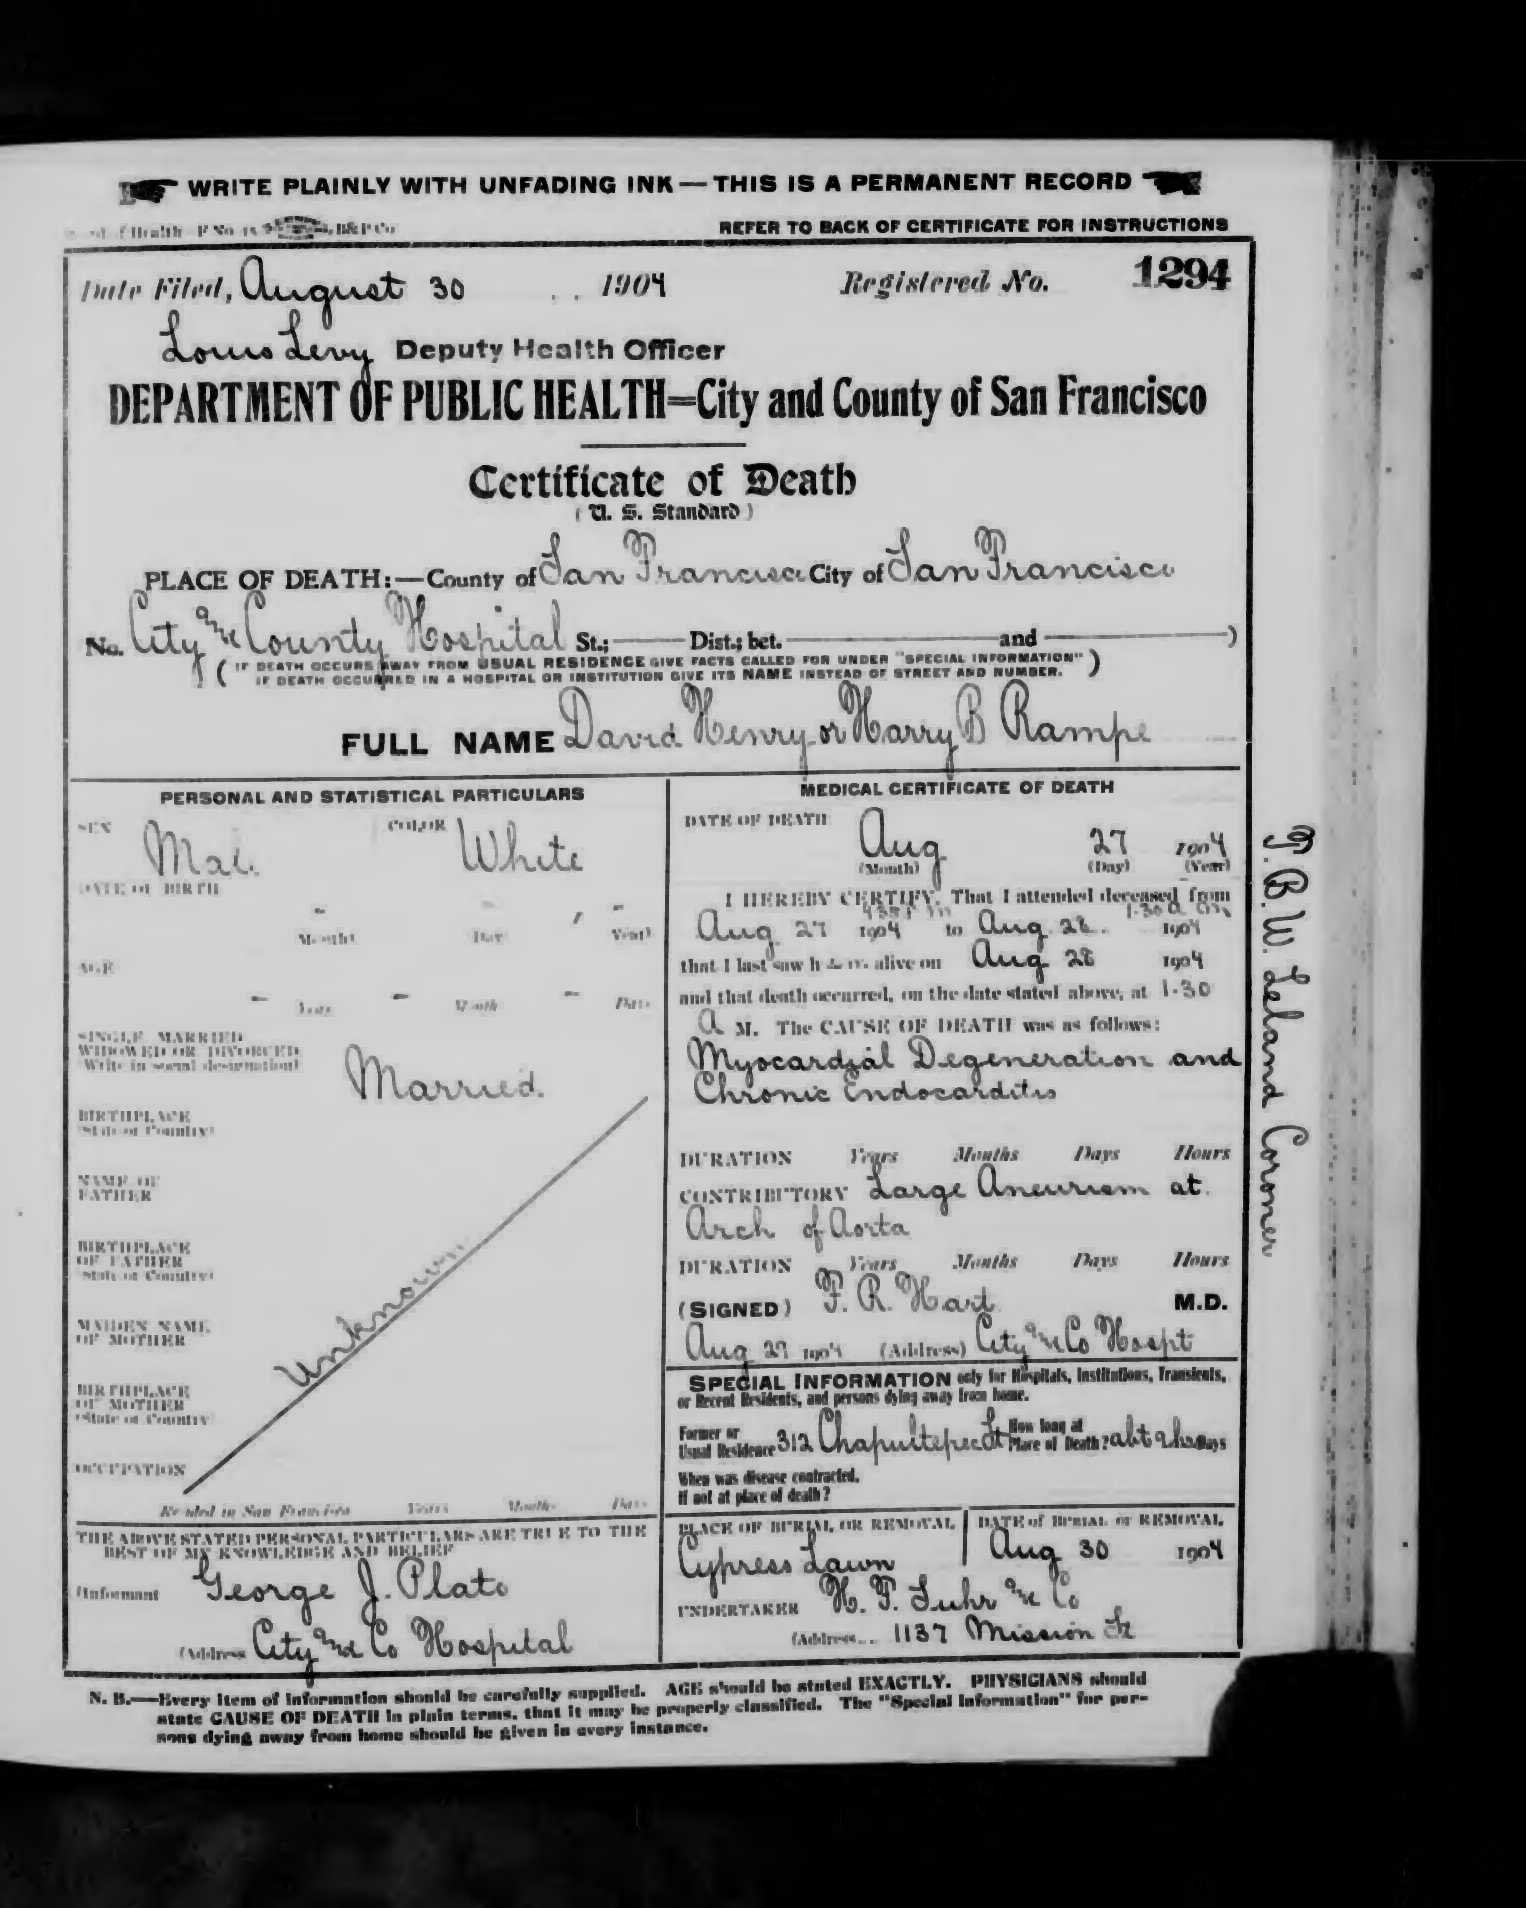 WRITE PLAINLY WITH UNFADING INK — THIS IS A PERMANENT RECORD
of Health F No. 15 B&P Co
REFER TO BACK OF CERTIFICATE FOR INSTRUCTIONS
Date Filed, August 30 1904 Registered No. 1294
Louis Levy Deputy Health Officer
DEPARTMENT OF PUBLIC HEALTH=City and County of San Francisco
Certificate of Death
(U. S. Standard)
PLACE OF DEATH:—County of San Francisco City of San Francisco
No. City and County Hospital St.; Dist.; bet. and )
( IF DEATH OCCURS AWAY FROM USUAL RESIDENCE GIVE FACTS CALLED FOR UNDER "SPECIAL INFORMATION" )
IF DEATH OCCURRED IN A HOSPITAL OR INSTITUTION GIVE ITS NAME INSTEAD OF STREET AND NUMBER.
FULL NAME David Henry or Harry B Rampe
PERSONAL AND STATISTICAL PARTICULARS
SEX Male COLOR White
DATE OF BIRTH
(Month) (Day) (Year)
AGE
Years Months Days
SINGLE, MARRIED
WIDOWED OR DIVORCED
(Write in social designation) Married.
BIRTHPLACE
(State or Country)
NAME OF
FATHER
BIRTHPLACE
OF FATHER
(State or Country)
Unknown
MAIDEN NAME
OF MOTHER
BIRTHPLACE
OF MOTHER
(State or Country)
OCCUPATION
Resided in San Francisco Years Months Days
THE ABOVE STATED PERSONAL PARTICULARS ARE TRUE TO THE
BEST OF MY KNOWLEDGE AND BELIEF
(Informant George J. Plato
(Address City and Co Hospital
MEDICAL CERTIFICATE OF DEATH
DATE OF DEATH
Aug 27 1904
(Month) (Day) (Year)
I HEREBY CERTIFY, That I attended deceased from
1-30 a m
Aug 27 1904 to Aug. 28. 1904
that I last saw him alive on Aug 28 1904
and that death occurred, on the date stated above, at 1-30
A M. The CAUSE OF DEATH was as follows:
Myocardial Degeneration and
Chronic Endocarditis
DURATION Years Months Days Hours
CONTRIBUTORY Large Aneurism at
Arch of Aorta
DURATION Years Months Days Hours
(SIGNED) F. R. Hart M.D.
Aug 29 1904 (Address) City and Co Hospt
SPECIAL INFORMATION only for Hospitals, Institutions, Transients,
or Recent Residents, and persons dying away from home.
Former or
Usual Residence 312 Chapultepec St How long at
Place of Death? abt 9 hrs Days
When was disease contracted,
If not at place of death?
PLACE OF BURIAL OR REMOVAL DATE of BURIAL or REMOVAL
Cypress Lawn Aug 30 1904
UNDERTAKER H. F. Suhr and Co
(Address 1137 Mission St
N. B.—Every item of information should be carefully supplied. AGE should be stated EXACTLY. PHYSICIANS should
state CAUSE OF DEATH in plain terms, that it may be properly classified. The "Special Information" for per-
sons dying away from home should be given in every instance.
T. B. W. Leland Coroner